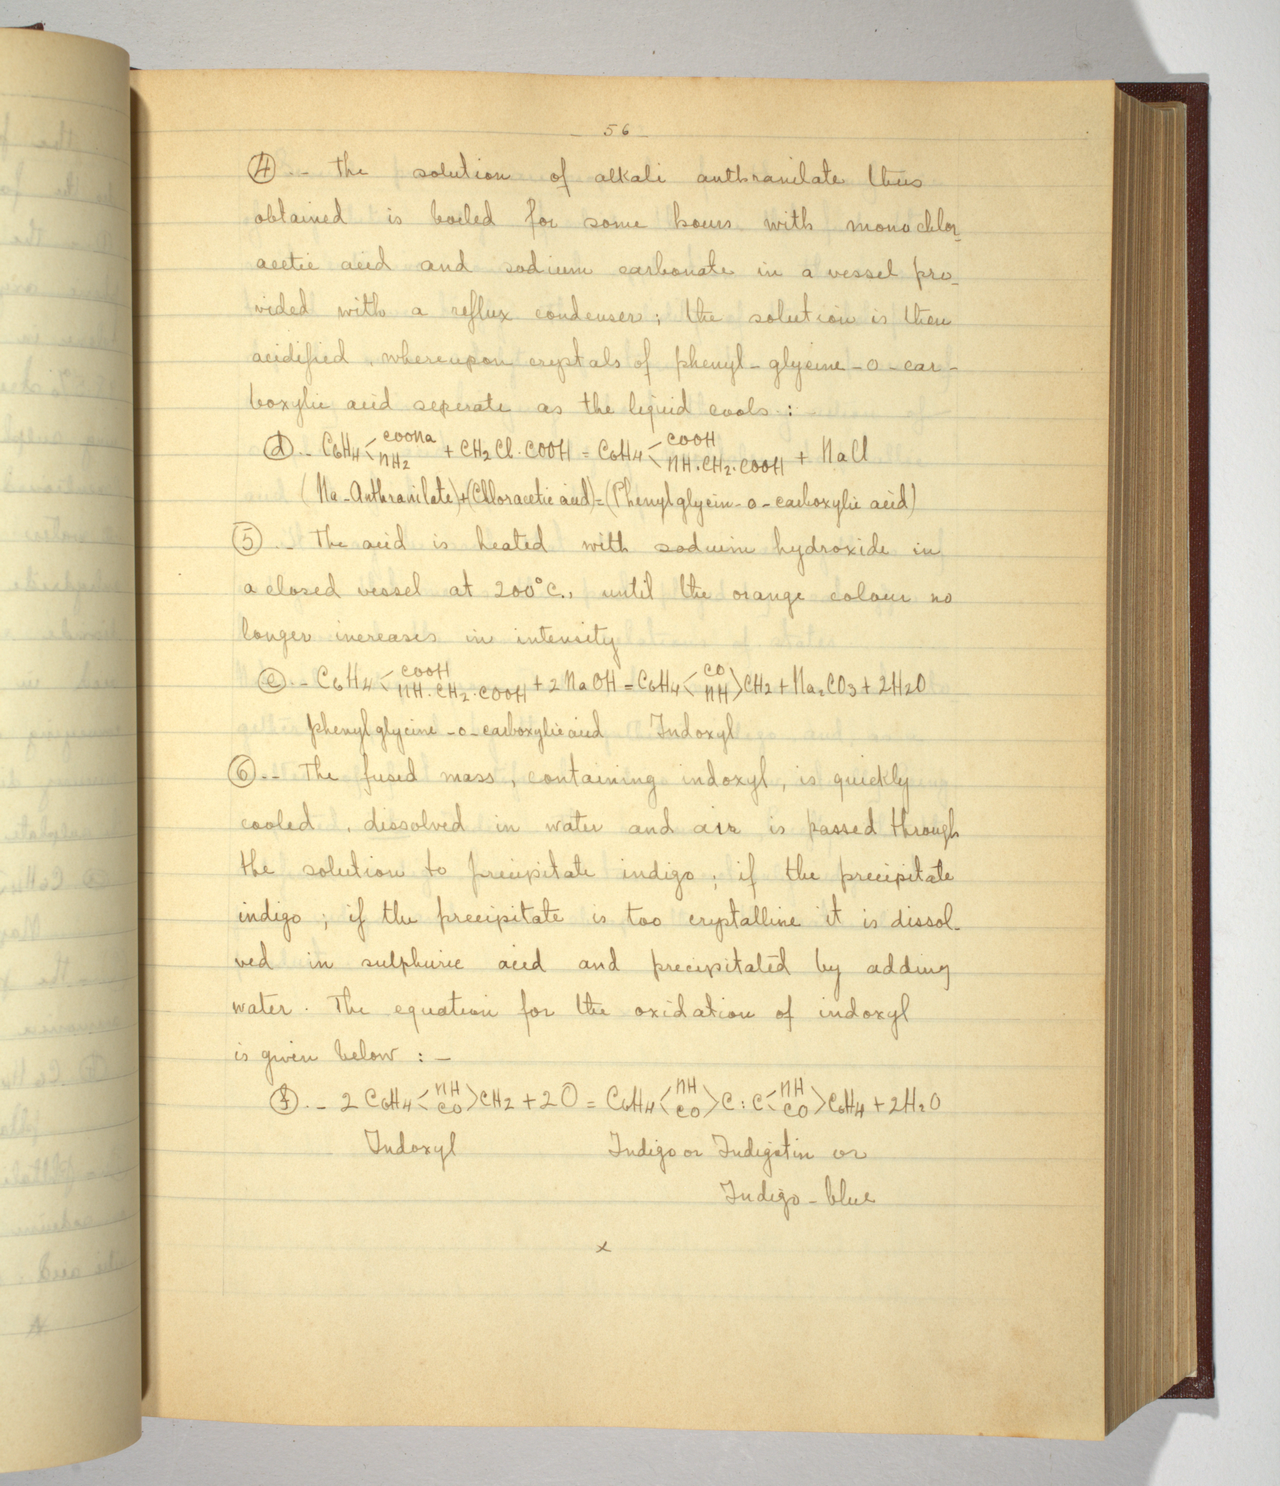 56
④.- The solution of alkali anthranilate thus
obtained is boiled for some hours with monochlor-
acetic acid and sodium carbonate in a vessel pro-
vided with a reflux condenser; the solution is then
acidified, whereupon crystals of phenyl-glycine-o-car-
boxylic acid seperate as the liquid cools.:
ⓓ.- C6H4<COONa NH2 + CH2Cl.COOH = C6H4<COOH NH.CH2.COOH + NaCl
(Na-Anthranilate)+(Chloracetic acid)=(Phenylglycin-o-carboxylic acid)
⑤.- The acid is heated with sodium hydroxide in
a closed vessel at 200°C., until the orange colour no
longer increases in intensity
ⓔ.- C6H4<COOH NH.CH2.COOH + 2NaOH = C6H4<CO NH>CH2 + Na2CO3 + 2H2O
phenylglycine-o-carboxylic acid Indoxyl
⑥.- The fused mass, containing indoxyl, is quickly
cooled, dissolved in water and air is passed through
the solution to precipitate indigo; if the precipitate
indigo; if the precipitate is too crystalline it is dissol-
ved in sulphuric acid and precipitated by adding
water. The equation for the oxidation of indoxyl
is given below:-
ⓕ.- 2C6H4<NH CO>CH2 + 2O = C6H4<NH CO>C:C<NH CO>C6H4 + 2H2O
Indoxyl Indigo or Indigotin or
Indigo-blue
x